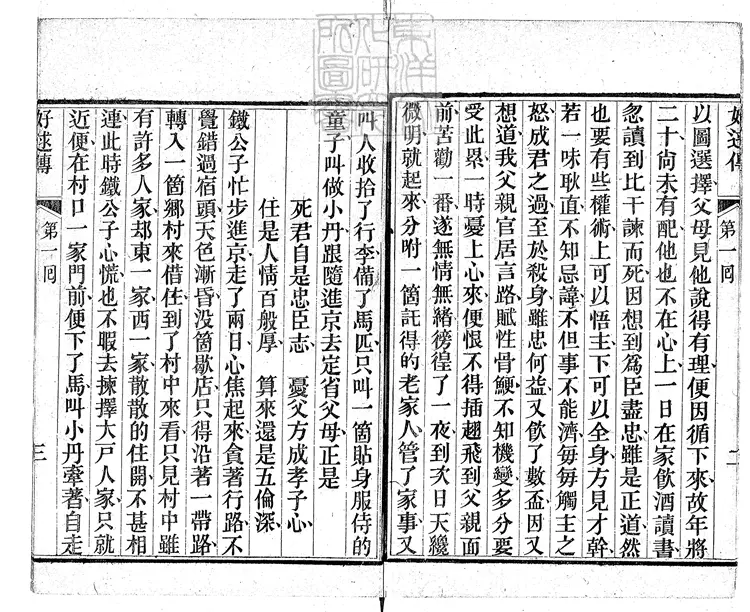 好逑傳
第一回
二
以圖選擇父母見他說得有理便因循下來故年將
二十尙未有配他也不在心上一日在家飮酒讀書
忽讀到比干諫而死因想到爲臣盡忠雖是正道然
也要有些權術上可以悟主下可以全身方見才幹
若一味耿直不知忌諱不但事不能濟每每觸主之
怒成君之過至於殺身雖忠何益又飮了數盃因又
想道我父親官居言路賦性骨鯁不知機變多分要
受此累一時憂上心來便恨不得插翅飛到父親面
前苦勸一番遂無情無緒徬徨了一夜到次日天纔
微明就起來分咐一箇託得的老家人管了家事又
叫人收拾了行李備了馬匹只叫一箇貼身服侍的
童子叫做小丹跟隨進京去定省父母正是
死君自是忠臣志　憂父方成孝子心
任是人情百般厚　算來還是五倫深
鐵公子忙步進京走了兩日心焦起來貪著行路不
覺錯過宿頭天色漸昏没箇歇店只得沿著一帶路
轉入一箇鄉村來借住到了村中來看只見村中雖
有許多人家却東一家西一家散散的住開不甚相
連此時鐵公子心慌也不暇去揀擇大戸人家只就
近便在村口一家門前便下了馬叫小丹牽著自走
好逑傳
第一回
三